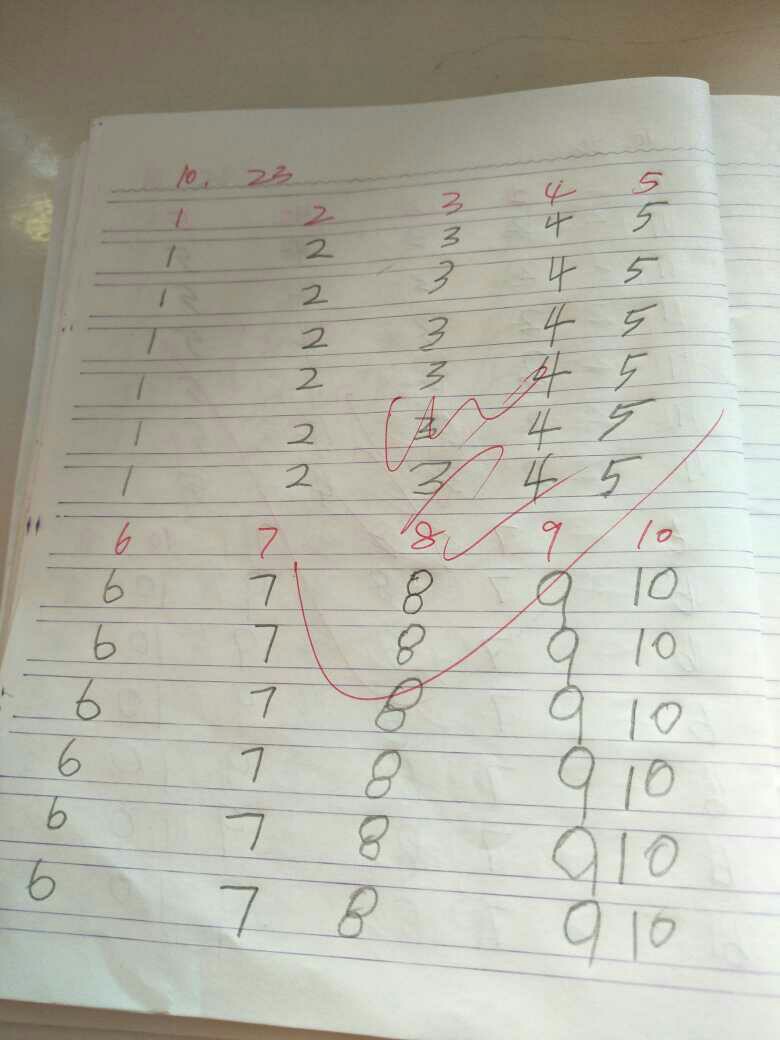 10. 23
1 2 3 4 5
1 2 3 4 5
1 2 3 4 5
1 2 3 4 5
1 2 3 4 5
1 2 3 4 5
1 2 3 4 5
6 7 8 9 10
6 7 8 9 10
6 7 8 9 10
6 7 8 9 10
6 7 8 9 10
6 7 8 9 10
6 7 8 9 10